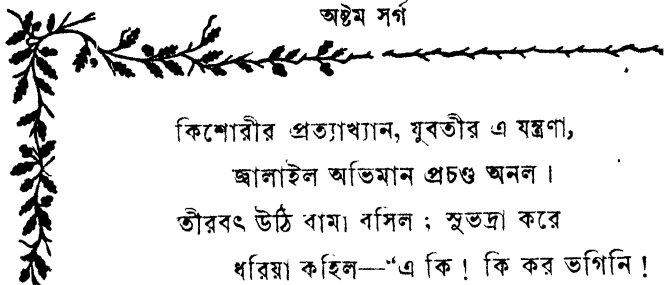 অষ্টম সর্গ
কিশোরীর প্রত্যাখ্যান, যুবতীর এ যন্ত্রণা,
জ্বালাইল অভিমান প্রচণ্ড অনল ।
তীরবৎ উঠি বামা বসিল ; সুভদ্রা করে
ধরিয়া কহিল—“এ কি ! কি কর ভগিনি !